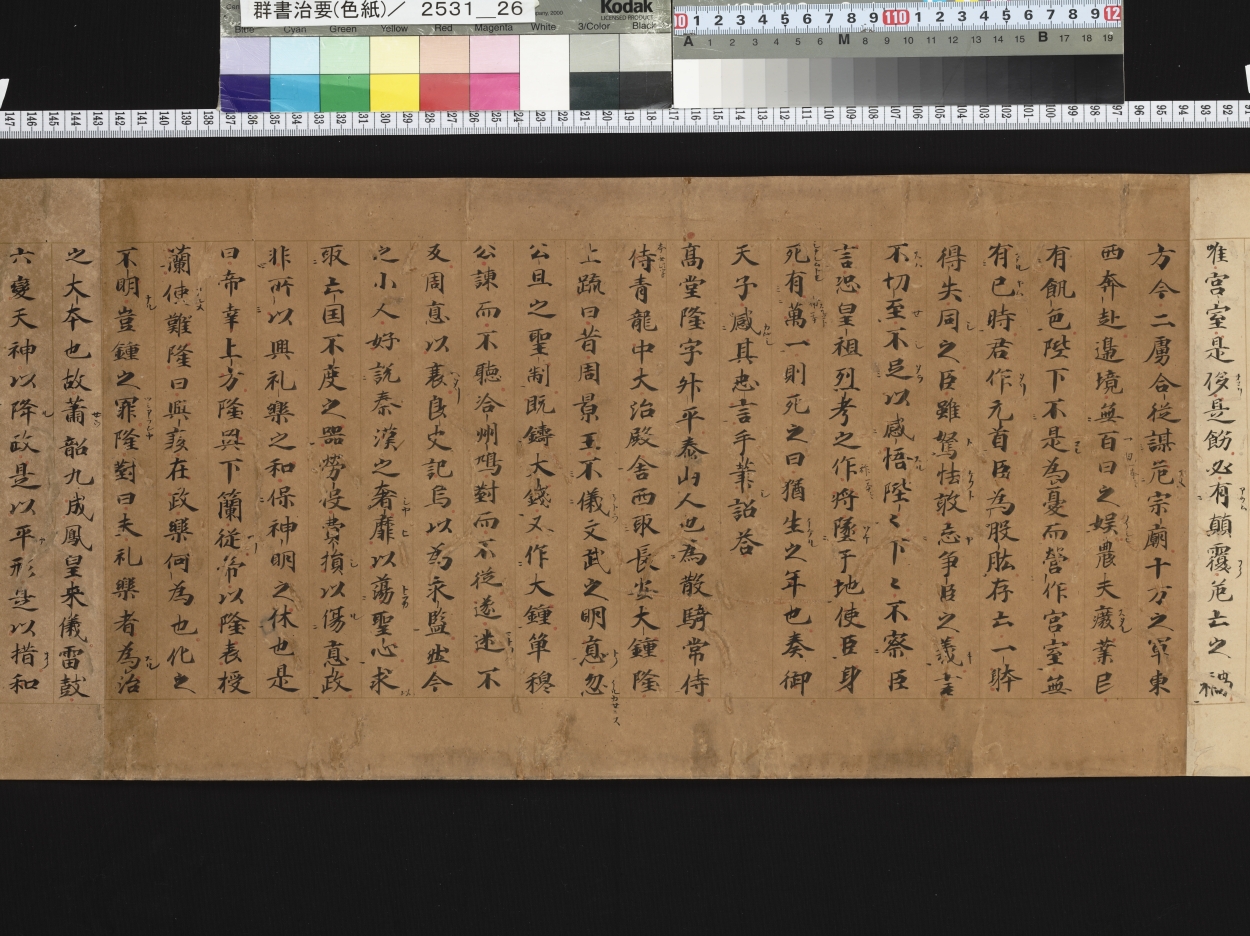 群書治要(色紙)/ 2531__26
Kodak
LICENSED PRODUCT
Blue Cyan Green Yellow Red Magenta White 3/Color Black
唯宮室是侈是飾必有顛覆危亡之禍
方今二虜合従謀危宗廟十万之軍東
西奔赴邉境無百日之娯農夫癈業民
有飢色陛下不是為憂而営作宮室無
有已時君作元首臣為股肱存亡一體
得失同之臣雖駑怯敢忘争臣之義言
不切至不足以感悟陛〻下〻不察臣
言恐皇祖烈考之作将墜于地使臣身
死有萬一則死之日猶生之年也奏御
天子感其忠言手筆詔荅
髙堂隆字升平泰山人也為散騎常侍
侍青龍中大治殿舎西取長安大鐘隆
上䟽曰昔周景王不儀文武之明悳忽
公旦之聖制既鑄大錢又作大鐘単穆
公諌而不聴泠州鳩對而不従遂迷不
反周悳以衰良史記焉以為永監然今
之小人好說秦漢之奢靡以蕩聖心求
取亡国不度之器勞役費損以傷悳政
非所以興礼樂之和保神明之休也是
日帝幸上方隆與卞蘭従帝以隆表授
蘭使難隆曰興衰在政樂何為也化之
不明豈鐘之罪隆對曰夫礼樂者為治
之大本也故蕭韶九成鳳皇来儀雷鼓
六變天神以降政是以平形是以措和